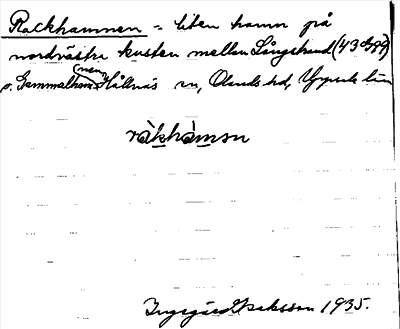 Rackhamnen = liten hamn på
nordvästra kusten mellan Långstrand (43
o. Gammelham(nen) Hållnäs sn, Olands hd, Uppsala län
ràkhàmən
Ingegärd Isaksson 1935.